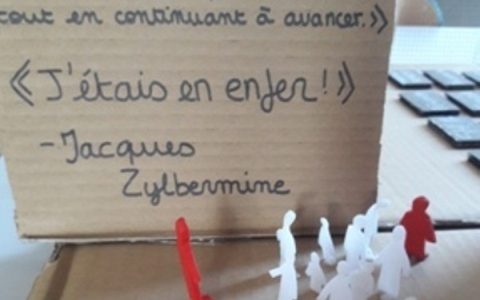 tout en continuant à avancer.»
«J'étais en enfer!»
-Jacques
Zylbermine